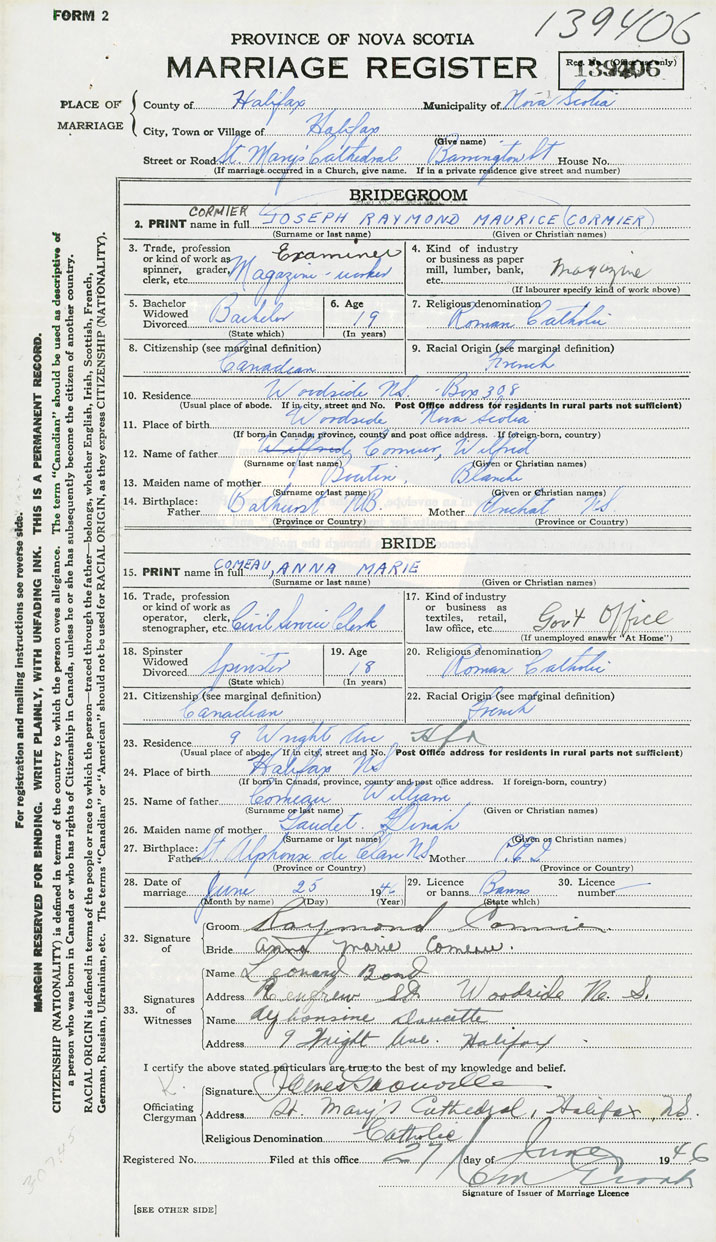 FORM 2
139406
PROVINCE OF NOVA SCOTIA
MARRIAGE REGISTER
Reg. No. (Office use only)
139406
PLACE OF MARRIAGE
County of Halifax Municipality of Nova Scotia
City, Town or Village of Halifax
(Give name)
Street or Road St. Mary's Cathedral Barrington St House No.
(If marriage occurred in a Church, give name. If in a private residence give street and number)
BRIDEGROOM
CORMIER
2. PRINT name in full JOSEPH RAYMOND MAURICE (CORMIER)
(Surname or last name) (Given or Christian names)
3. Trade, profession or kind of work as spinner, grader, clerk, etc. Examiner Magazine-worker
4. Kind of industry or business as paper mill, lumber, bank, etc. Magazine
(If labourer specify kind of work above)
5. Bachelor Widowed Divorced Bachelor
(State which)
6. Age 19
(In years)
7. Religious denomination
Roman Catholic
8. Citizenship (see marginal definition)
Canadian
9. Racial Origin (see marginal definition)
French
10. Residence Woodside N.S. Box 308
(Usual place of abode. If in city, street and No. Post Office address for residents in rural parts not sufficient)
11. Place of birth Woodside Nova Scotia
(If born in Canada, province, county and post office address. If foreign-born, country)
12. Name of father Wilfred Cormier, Wilfred
(Surname or last name) (Given or Christian names)
13. Maiden name of mother Boutin, Blanche
(Surname or last name) (Given or Christian names)
14. Birthplace: Father Bathurst N.B. Mother N.S
(Province or Country) (Province or Country)
BRIDE
15. PRINT name in full COMEAU, ANNA MARIE
(Surname or last name) (Given or Christian names)
16. Trade, profession or kind of work as operator, clerk, stenographer, etc. Civil Service Clerk
17. Kind of industry or business as textiles, retail, law office, etc. Gov't Office
(If unemployed answer "At Home")
18. Spinster Widowed Divorced Spinster
(State which)
19. Age 18
(In years)
20. Religious denomination
Roman Catholic
21. Citizenship (see marginal definition)
Canadian
22. Racial Origin (see marginal definition)
French
23. Residence 9 Wright Ave Hfx
(Usual place of abode. If in city, street and No. Post Office address for residents in rural parts not sufficient)
24. Place of birth Halifax NS
(If born in Canada, province, county and post office address. If foreign-born, country)
25. Name of father Comeau William
(Surname or last name) (Given or Christian names)
26. Maiden name of mother Gaudet Dinah
(Surname or last name) (Given or Christian names)
27. Birthplace: Father St Alphonse de Clare NS Mother P.E.I
(Province or Country) (Province or Country)
28. Date of marriage June 25 1946
(Month by name) (Day) (Year)
29. Licence or banns Banns
(State which)
30. Licence number
32. Signature of
Groom Raymond Cormier
Bride Anna Marie Comeau.
33. Signatures of Witnesses
Name Leonard Bond
Address Renfrew St. Woodside No. S.
Name Alphonsine Doucette
Address 9 Wright Ave. Halifax
I certify the above stated particulars are true to the best of my knowledge and belief.
Officiating Clergyman
Signature
Address St. Mary's Cathedral, Halifax, N.S.
Religious Denomination Catholic
Registered No. Filed at this office 27 day of June 1946
Signature of Issuer of Marriage Licence
[SEE OTHER SIDE]
For registration and mailing instructions see reverse side.
MARGIN RESERVED FOR BINDING. WRITE PLAINLY, WITH UNFADING INK. THIS IS A PERMANENT RECORD.
CITIZENSHIP (NATIONALITY) is defined in terms of the country to which the person owes allegiance. The term "Canadian" should be used as descriptive of
a person who was born in Canada or who has rights of Citizenship in Canada, unless he or she has subsequently become the citizen of another country.
RACIAL ORIGIN is defined in terms of the people or race to which the person—traced through the father—belongs, whether English, Irish, Scottish, French,
German, Russian, Ukrainian, etc. The terms "Canadian" or "American" should not be used for RACIAL ORIGIN, as they express CITIZENSHIP (NATIONALITY).